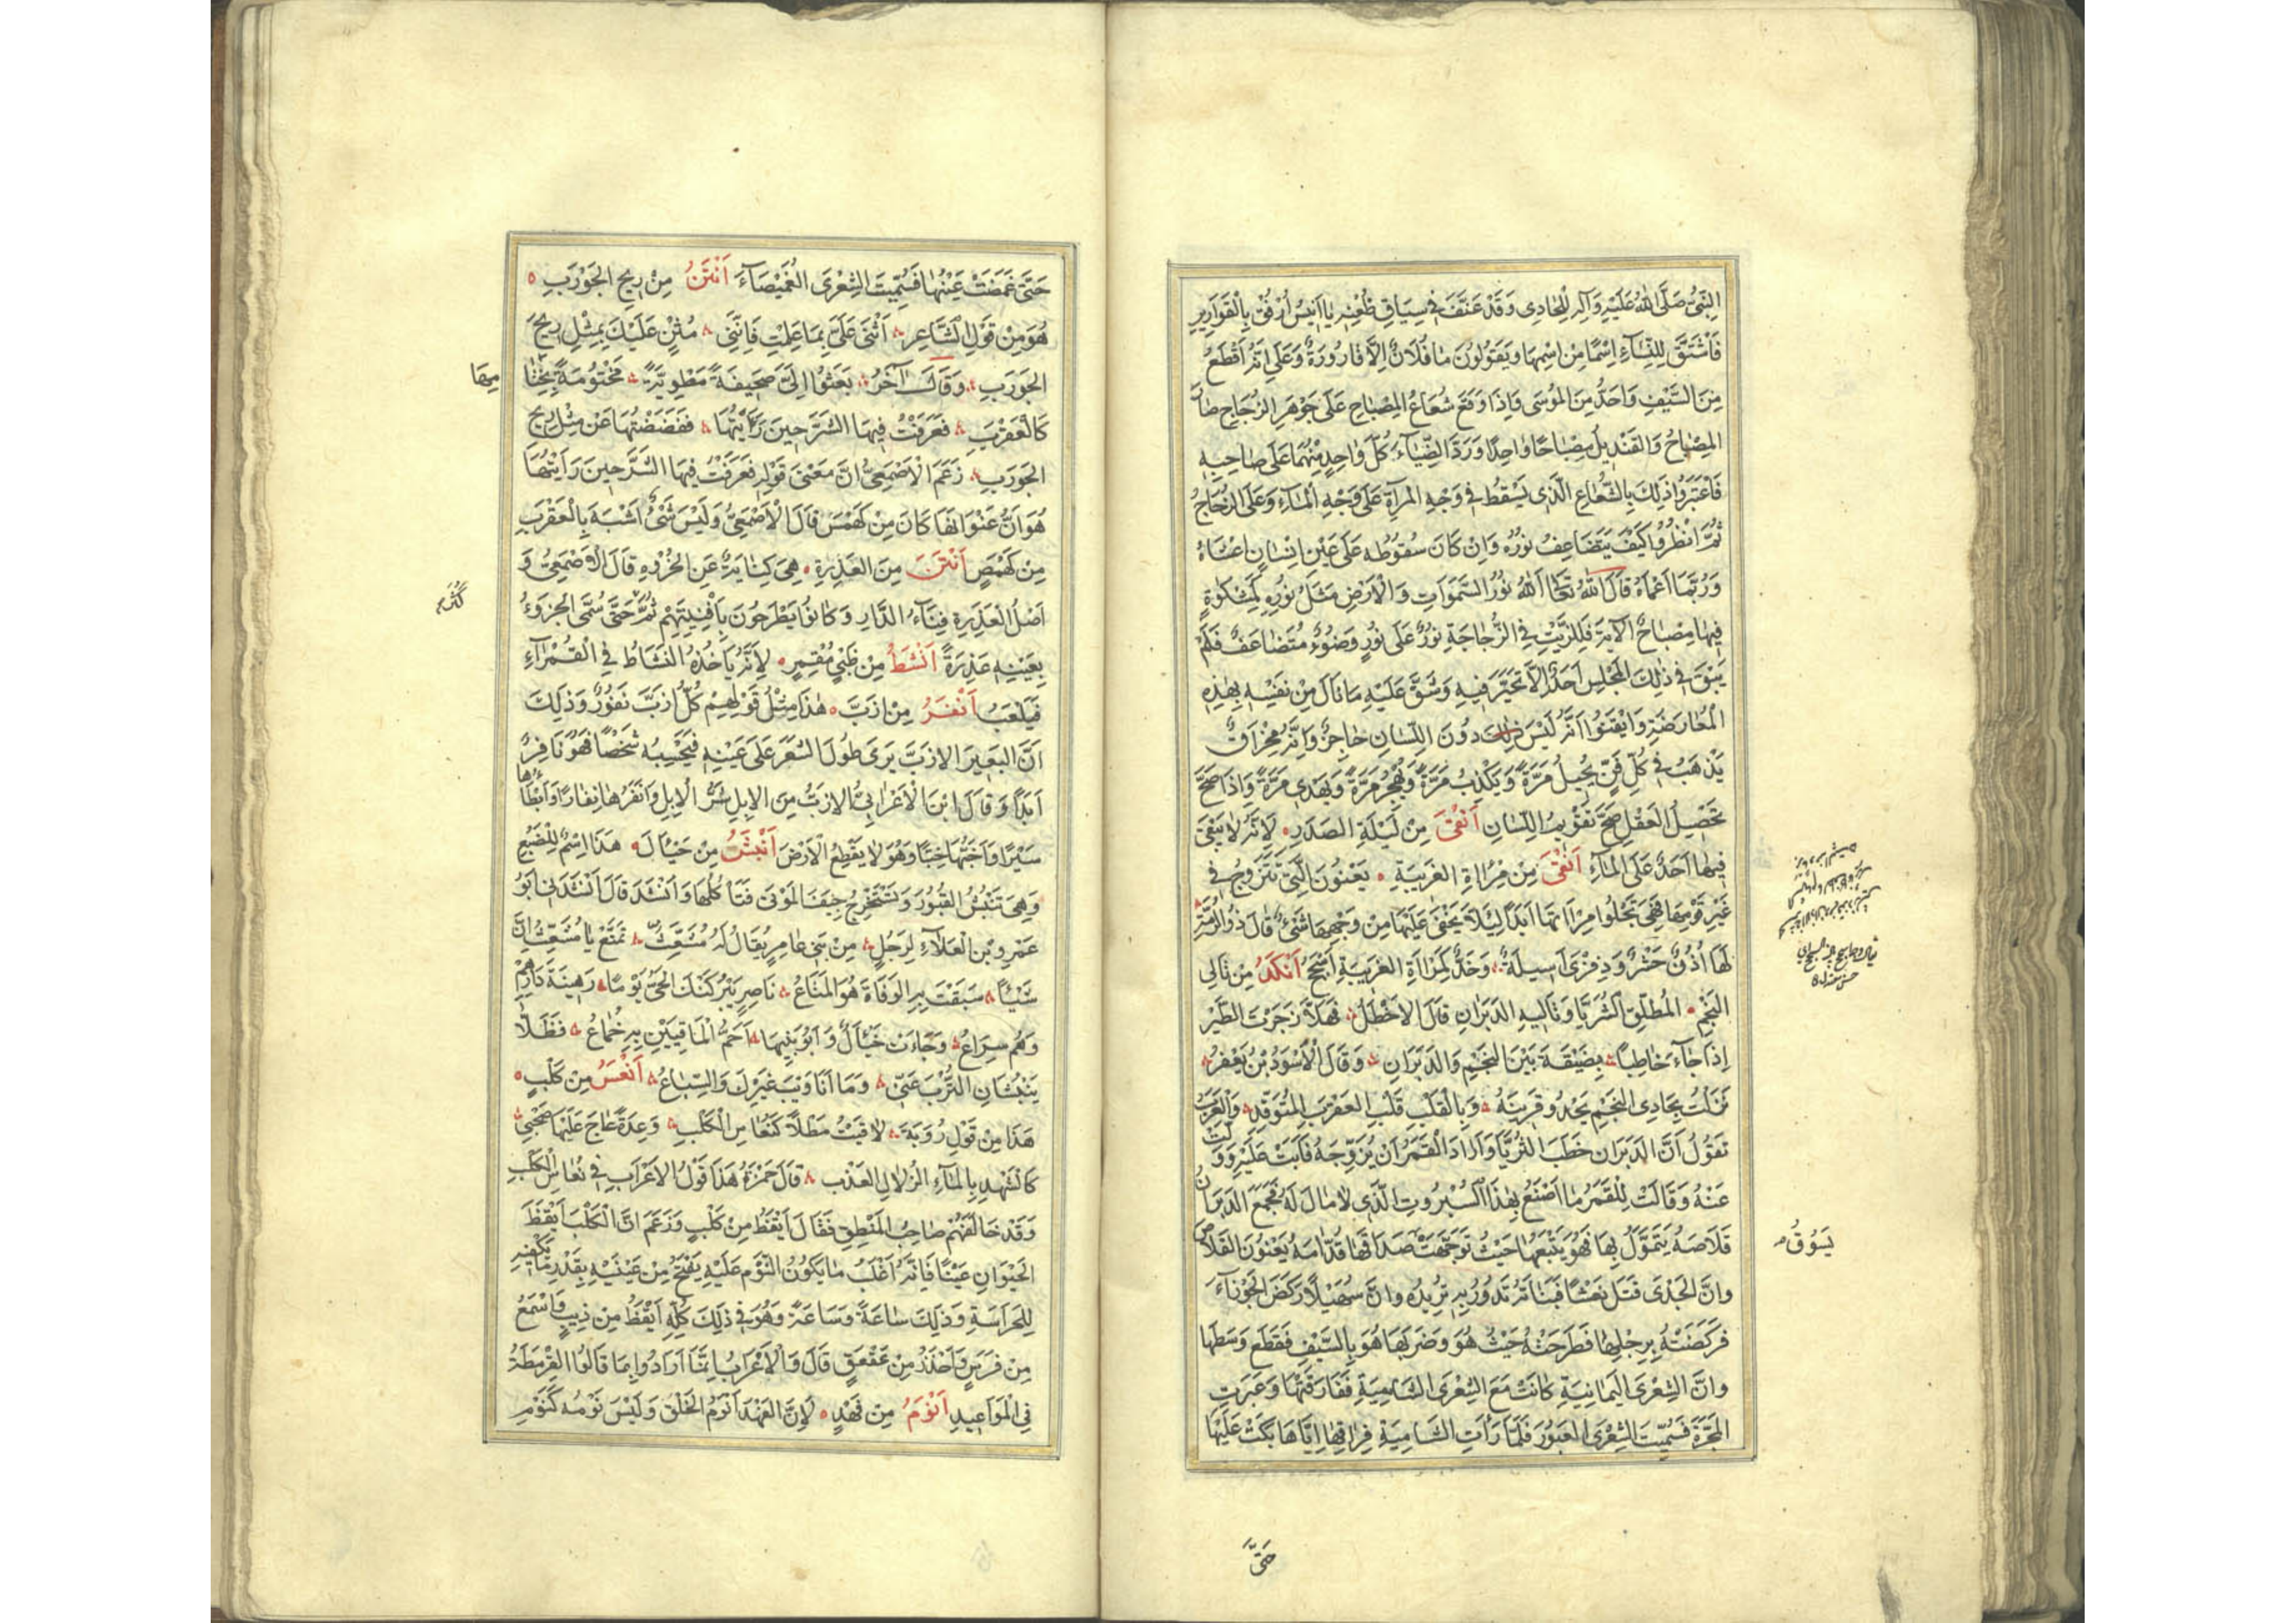 النبي صلى الله عليه وآله للحادى وقد عنف في سياق ظعنه يا انيس ارفق بالقوارير
فاشتق للنساء اسما من اسمها ويقولون ما فلان الا قارورة وعلى اثر اقطع
من السيف واحد من الموسى واذا وقع شعاع المصباح على جوهر الزجاج صار
المصباح والقنديل مصباحا واحدا ورد الضياء كل واحد منهما على صاحبه
فاعتبروا ذلك بالشعاع الذى يسقط في وجه المرآة على وجه الماء وعلى الزجاج
ثم انظروا كيف يتضاعف نوره وان كان سقوطه على عين انسان اعشاه
وربما اعماه قال الله تعالى الله نور السموات والارض مثل نوره كمشكوة
فيها مصباح الآية فللزيت في الزجاجة نور على نور وضوء متضاعف فلم
يبق في ذلك المجلس احد الا تحير فيه وشق عليه ما نال من نفسه بهذه
المعارضة وايقنوا انه ليس دون اللسان حاجز وانه مخراق
يذهب في كل فن يخيل مرة ويكذب مرة ويهجر مرة ويهذى مرة واذا صح
تحصيل العقل صح تقويم اللسان انقى من ليلة الصدر لانه لا يبقى
فيها احد على الماء انقى من مرآة الغريبة يعنون التى تتزوج في
غير قومها فهي تجلوا مرآتها ابدا ليلا يخفى عليها من وجهها شىء قال ذو الرمة
لها اذن حشر وذفرى اسيلة وخد كمرآة الغريبة اسجح انكد من تالى
النجم المطلق الثريا وتاليه الدبران قال الاخطل فهلا زجرت الطير
اذ جاء خاطبا بضيقة بين النجم والدبران وقال الاسود بن يعفر
نزلت بحادى النجم يحدو قرينه وبالقلب قلب العقرب المتوقد والعرب
تقول ان الدبران خطب الثريا واراد القمر ان يزوجه فابت عليه وولت
عنه وقالت للقمر ما اصنع بهذا السبروت الذى لا مال له فجمع الدبران
قلاصه يتمول بها فهو يتبعها حيث توجهت صداقها قدامه يعنون القلاص
يسوق
وان الجدى قتل نعشا فبناته تدور به تريده وان سهيلا ركض الجوزاء
فركضته برجلها فطرحته حيث هو وضربها هو بالسيف فقطع وسطها
وان الشعرى اليمانية كانت مع الشعرى الشامية ففارقتها وعبرت
المجرة فسميت الشعرى العبور فلما رأت الشامية فراقها اياها بكت عليها
حتى
حتى غمضت عينها فسميت الشعرى الغميصاء انتن من ريح الجورب
هو من قول الشاعر اثنى على بما علمت فاننى مثن عليك بمثل ريح
الجورب وقال آخر بعثوا الى صحيفة مطوية مختومة بختامها
كالعقرب فعرفت فيها الشر حين رأيتها ففضضتها عن مثل ريح
الجورب زعم الاصمعى ان معنى قوله فعرفت فيها الشر حين رأيتها
هو ان عنوانها كان من كهمس قال الاصمعى وليس شىء اشبه بالعقرب
من كهمس انتن من العذرة هى كناية عن الخروء قال الاصمعى و
اصل العذرة فناء الدار وكانوا يطرحون بافنيتهم ثم حتى سمى الخروء
كثر
بعينه عذرة انشط من ظبى مقمر لانه يأخذه النشاط في القمراء
فيلعب انفر من ازب هذا مثل قولهم كل ازب نفور وذلك
ان البعير الازب يرى طول الشعر على عينه فيحسبه شخصا فهو نافر
ابدا وقال ابن الاعرابى الازب من الابل شر الابل وانفرها نفارا وابطأها
سيرا واخبها خببا وهو لا يقطع الارض انبش من جيأل هذا اسم للضبع
وهى تنبش القبور وتستخرج جيف الموتى فتأكلها وانشد قال انشدنى ابو
عمرو بن العلاء لرجل من بنى عامر يقال له مشعث تمتع يا مشعث ان
شيئا سبقت به الوفاة هو المتاع ناصر يتركنك الحى يوما رهينة دارهم
وهم سراع وجاءت جيأل وابو بنيها احم الماقيين به خماع فظلا
ينبشان الترب عنى وما انا ويب غيرك والسباع انعس من كلب
هذا من قول رؤبة لاقيت مطلا كنعاس الكلب وعدة عاج عليها صحبى
كالشهد بالماء الزلال العذب قال حمزة هذا قول الاعراب في نعاس الكلب
وقد خالفهم صاحب المنطق فقال ايقظ من كلب وزعم ان الكلب ايقظ
الحيوان عينا فانه اغلب ما يكون النوم عليه يفتح من عينيه بقدر ما يكفيه
للحراسة وذلك ساعة وساعة وهو في ذلك كله ايقظ من ذيب واسمع
من فرس واحذر من عقعق قال والاعراب انما ارادوا بما قالوا القرمطة
في المواعيد انوم من فهد لان الفهد انوم الخلق وليس نومه كنوم